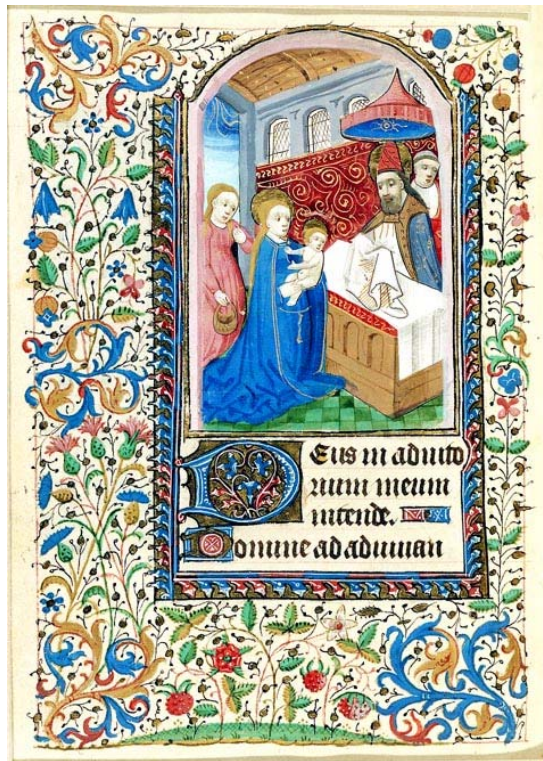 DEus in adiuto
rium meum
intende.
Domine ad adiuuan